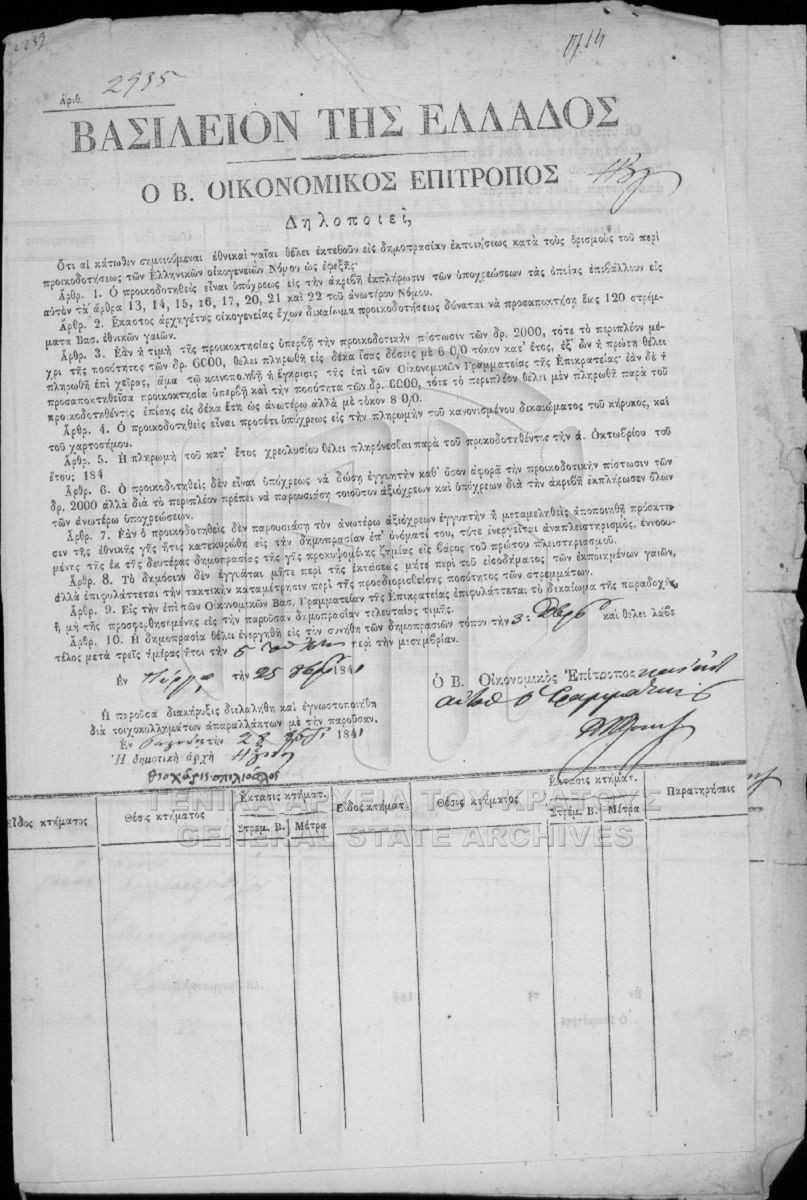 1714
Ἀριθ. 2935
ΒΑΣΙΛΕΙΟΝ ΤΗΣ ΕΛΛΑΔΟΣ
Ο Β. ΟΙΚΟΝΟΜΙΚΟΣ ΕΠΙΤΡΟΠΟΣ
Δηλοποιεῖ,
Ὅτι αἱ κάτωθεν σημειούμεναι ἐθνικαὶ γαῖαι θέλει ἐκτεθοῦν εἰς δημοπρασίαν ἐκποιήσεως κατὰ τοὺς ὁρισμοὺς τοῦ περὶ
προικοδοτήσεως τῶν Ἑλληνικῶν οἰκογενειῶν Νόμου ὡς ἐφεξῆς·
Ἄρθρ. 1. Ὁ προικοδοτηθεὶς εἶναι ὑπόχρεως εἰς τὴν ἀκριβῆ ἐκπλήρωσιν τῶν ὑποχρεώσεων τὰς ὁποίας ἐπιβάλλουν εἰς
αὐτὸν τὰ ἄρθρα 13, 14, 15, 16, 17, 20, 21 καὶ 22 τοῦ ἀνωτέρω Νόμου.
Ἄρθρ. 2. Ἕκαστος ἀρχηγέτης οἰκογενείας ἔχων δικαίωμα προικοδοτήσεως δύναται νὰ προσαποκτήσῃ ἕως 120 στρέμ-
ματα Βασ. ἐθνικῶν γαιῶν.
Ἄρθρ. 3. Ἐὰν ἡ τιμὴ τῆς προικοκτησίας ὑπερβῇ τὴν προικοδοτικὴν πίστωσιν τῶν δρ. 2000, τότε τὸ περιπλέον μέ-
χρι τῆς ποσότητος τῶν δρ. 6000, θέλει πληρωθῆ εἰς δέκα ἴσας δόσεις μὲ 6 0/0 τόκον κατ' ἔτος, ἐξ' ὧν ἡ πρώτη θέλει
πληρωθῆ ἐπὶ χεῖρας, ἅμα τῷ κοινοποιηθῇ ἡ ἔγκρισις τῆς ἐπὶ τῶν Οἰκονομικῶν Γραμματείας τῆς Ἐπικρατείας· ἐὰν δὲ ἡ
προσαποκτηθεῖσα προικοκτησία ὑπερβῇ καὶ τὴν ποσότητα τῶν δρ. 6000, τότε τὸ περιπλέον θέλει μὲν πληρωθῆ παρὰ τοῦ
προικοδοτηθέντος ἐπίσης εἰς δέκα ἔτη ὡς ἀνωτέρω ἀλλὰ μὲ τόκον 8 0/0.
Ἄρθρ. 4. Ὁ προικοδοτηθεὶς εἶναι προσέτι ὑπόχρεως εἰς τὴν πληρωμὴν τοῦ κανονισμένου δικαιώματος τοῦ κήρυκος, καὶ
τοῦ χαρτοσήμου.
Ἄρθρ. 5. Ἡ πληρωμὴ τοῦ κατ' ἔτος χρεολυσίου θέλει πληρόνεσθαι παρὰ τοῦ προικοδοτηθέντος τὴν ά. Ὀκτωβρίου τοῦ
ἔτους 184
Ἄρθρ. 6. Ὁ προικοδοτηθεὶς δὲν εἶναι ὑπόχρεως νὰ δώσῃ ἐγγυητὴν καθ' ὅσον ἀφορᾷ τὴν προικοδοτικὴν πίστωσιν τῶν
δρ. 2000 ἀλλὰ διὰ τὸ περιπλέον πρέπει νὰ παρουσιάσῃ τοιοῦτον ἀξιόχρεων καὶ ὑπόχρεων διὰ τὴν ἀκριβῆ ἐκπλήρωσεν ὅλων
τῶν ἀνωτέρω ὑποχρεώσεων.
Ἄρθρ. 7. Ἐὰν ὁ προικοδοτηθεὶς δὲν παρουσιάσῃ τὸν ἀνωτέρω ἀξιόχρεων ἐγγυητὴν ἢ μεταμεληθεὶς ἀποποιηθῇ πρόσκτη-
σιν τῆς ἐθνικῆς γῆς ἥτις κατεκυρώθη εἰς τὴν δημοπρασίαν ἐπ' ὀνόματί του, τότε ἐνεργεῖται ἀναπλειστηριασμὸς, ἐννοου-
μένης τῆς ἐκ τῆς δευτέρας δημοπρασίας τῆς γῆς προκυψομένης ζημίας εἰς βάρος τοῦ πρώτου πλειστηριασμοῦ.
Ἄρθρ. 8. Τὸ δημόσιον δὲν ἐγγυᾶται μήτε περὶ τῆς ἐκτάσεως μήτε περὶ τοῦ εἰσοδήματος τῶν ἐκποιημένων γαιῶν,
ἀλλὰ ἐπιφυλάττεται τὴν τακτικὴν καταμέτρησιν περὶ τῆς προσδιορισθείσης ποσότητος τῶν στρεμμάτων.
Ἄρθρ. 9. Εἰς τὴν ἐπὶ τῶν Οἰκονομικῶν Βασ. Γραμματείαν τῆς Ἐπικρατείας ἐπιφυλάττεται τὸ δικαίωμα τῆς παραδοχῆς
ἢ μὴ τῆς προσφερθησομένης εἰς τὴν παροῦσαν δημοπρασίαν τελευταίας τιμῆς.
Ἄρθρ. 10. Ἡ δημοπρασία θέλει ἐνεργηθῆ εἰς τὸν συνήθη τῶν δημοπρασιῶν τόπον τὴν 3: καὶ θέλει λάβε
τέλος μετὰ τρεῖς ἡμέρας ἤτοι τὴν 5 περὶ τὴν μεσημβρίαν.
Ἐν Πύργῳ τὴν 25 1841
Ὁ Β. Οἰκονομικὸς Ἐπίτροπος
ὁ Γραμματεὺς
Ἡ παροῦσα διακήρυξις διελαλήθη καὶ ἐγνωστοποιήθη
διὰ τοιχοκολλημάτων ἀπαραλλάκτων μὲ τὴν παροῦσαν.
Ἐν τὴν 28 1841
Ἡ δημοτικὴ ἀρχὴ
Εἶδος κτήματος
Θέσις κτήματος
Ἔκτασις κτήματ.
Στρέμ. Β.
Μέτρα
Εἶδος κτήματ.
Θέσις κτήματος
Ἔκτασις κτήματ.
Στρέμ. Β.
Μέτρα
Παρατηρήσεις
ΓΕΝΙΚΑ ΑΡΧΕΙΑ ΤΟΥ ΚΡΑΤΟΥΣ
GENERAL STATE ARCHIVES